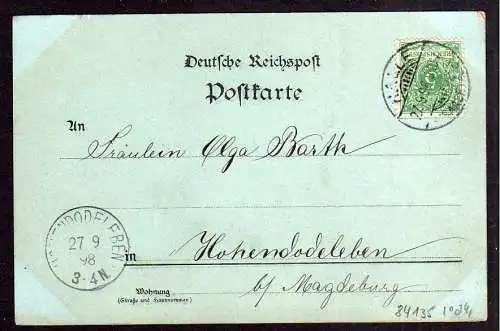 Deutsche Reichspost
Postkarte
An
Fräulein Olga Barth
in
Hohendodeleben
b/ Magdeburg
Wohnung
(Straße und Hausnummer)
HOHENDODELEBEN
27 9
98
3-4N
84135